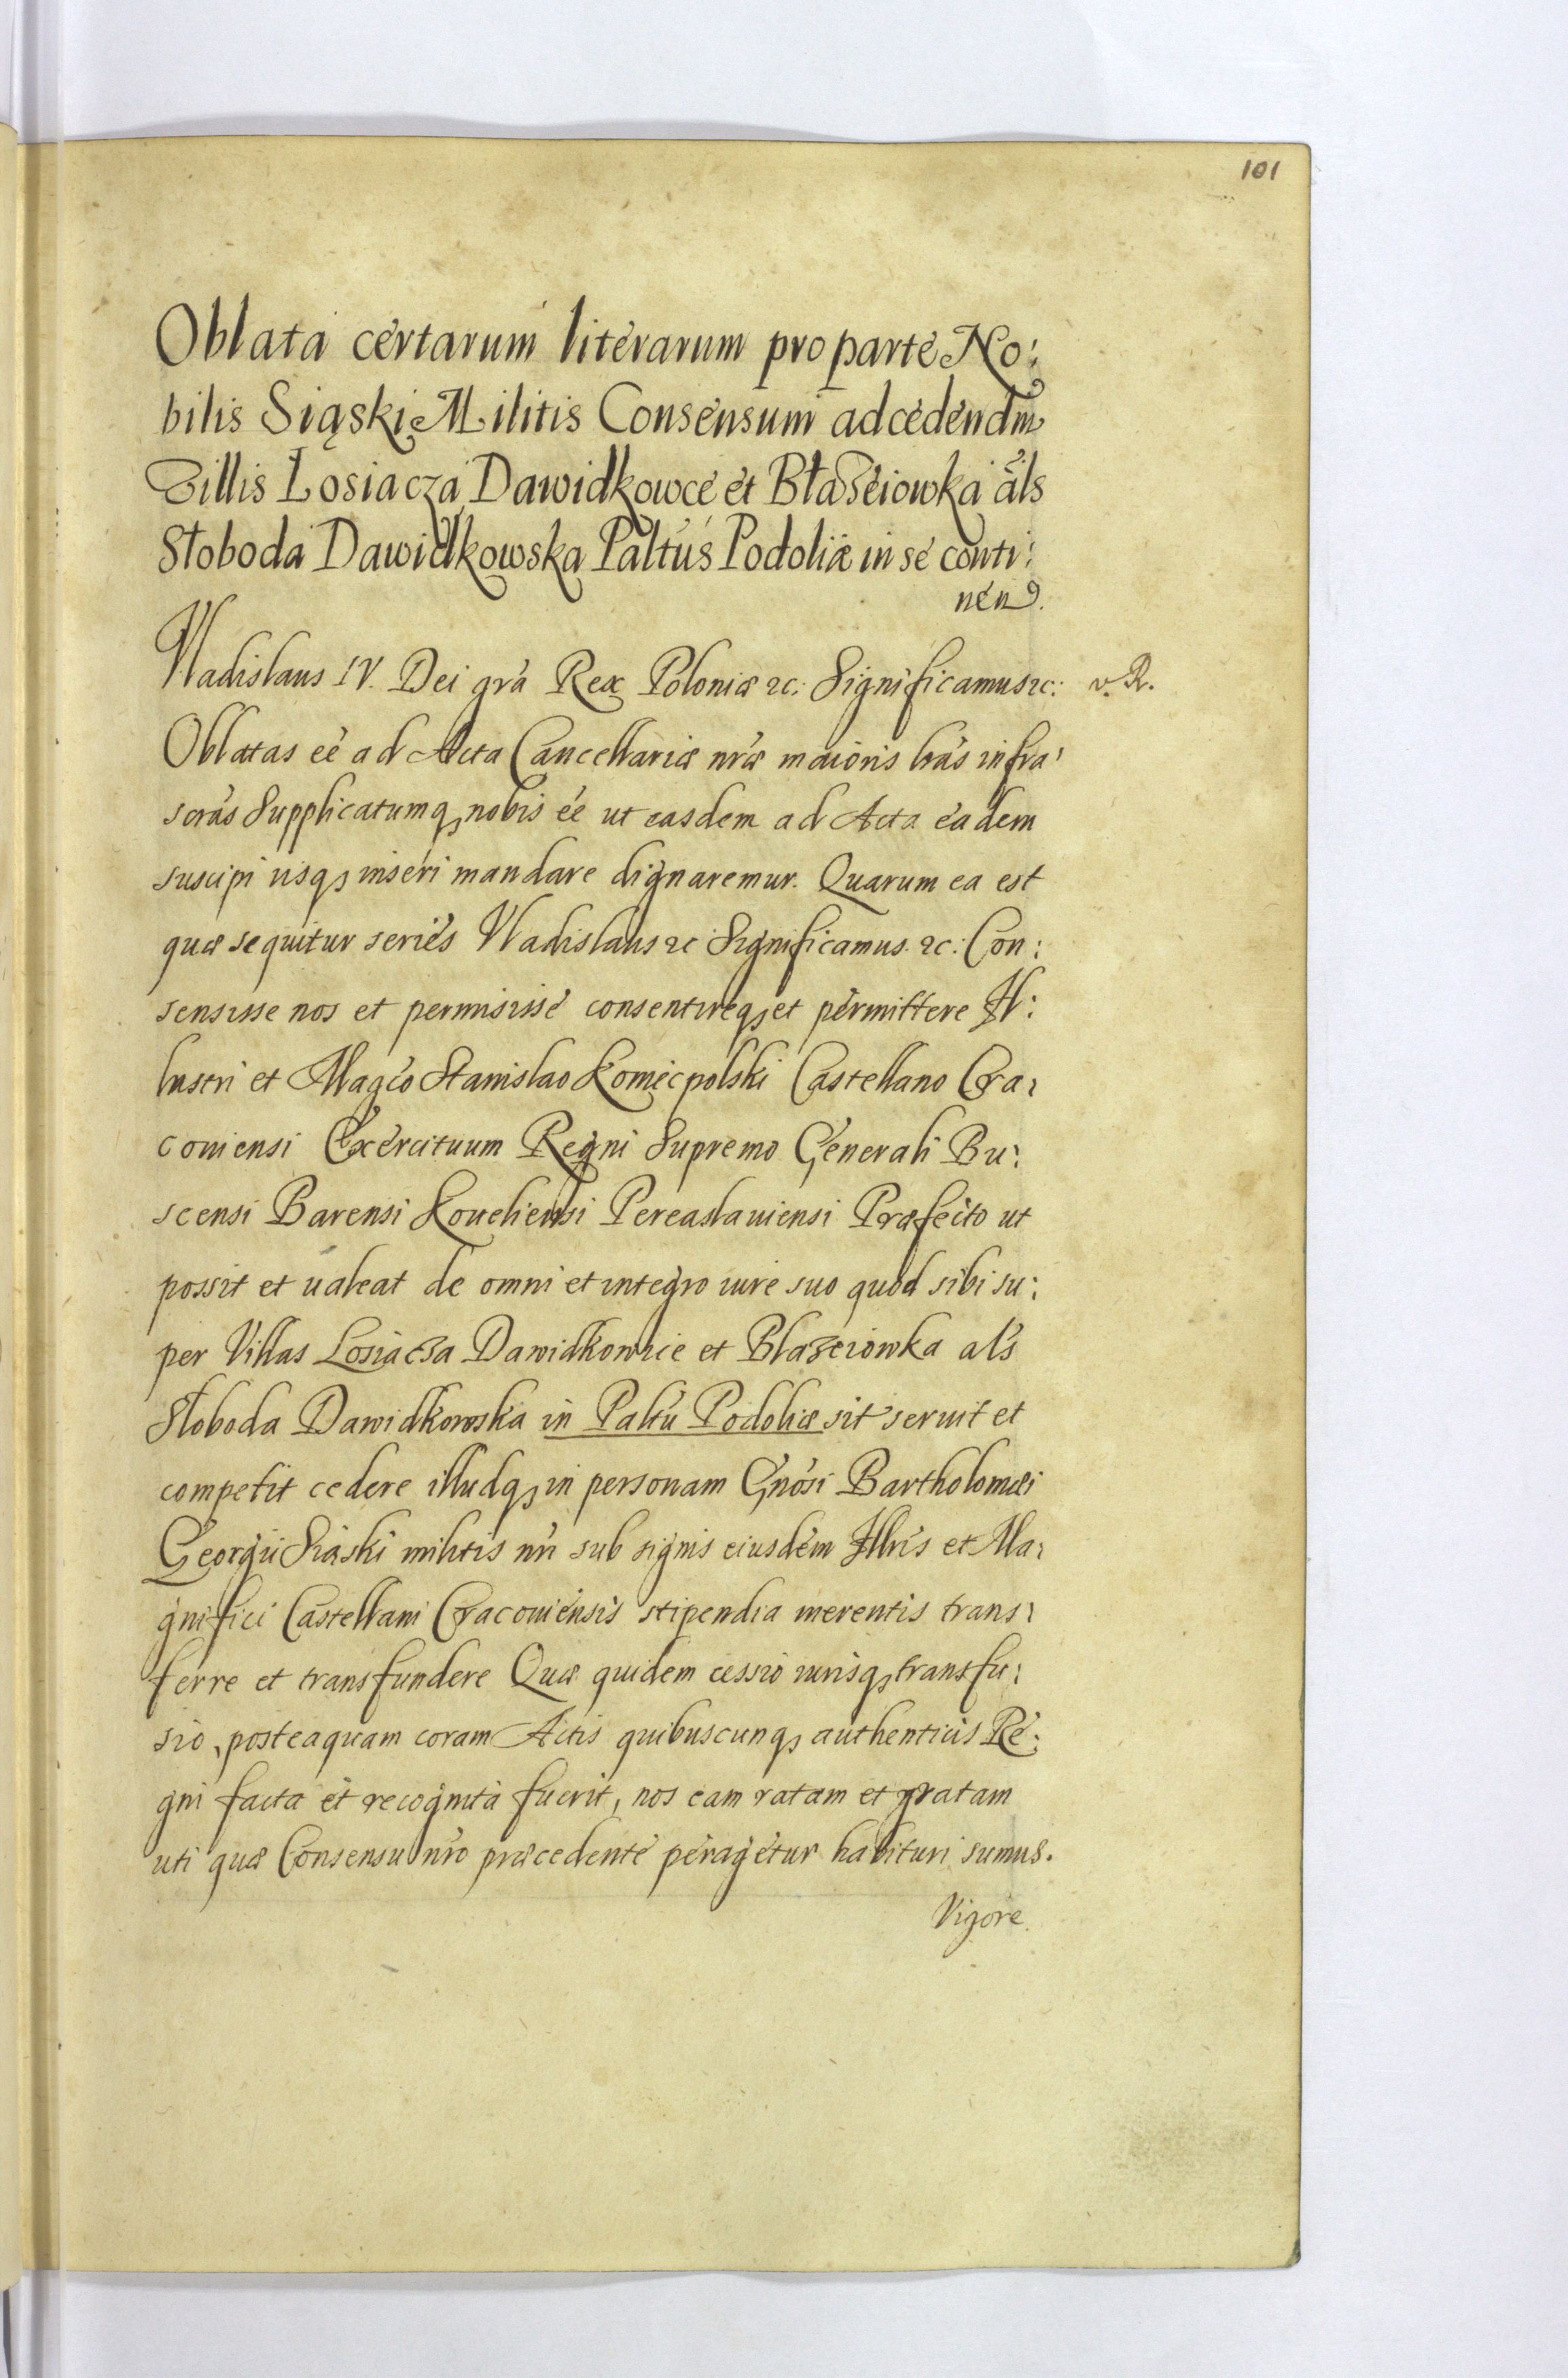 101
Oblata certarum literarum pro parte No:
bilis Siąski Militis Consensum ad cedendm
Villis Losiacza Dawidkowce et Błażeiowka als
Słoboda Dawidkowska Paltus Podoliæ in se conti:
nen.
Vladislaus IV. Dei gra Rex Poloniæ &c: Significamus &c: v. R.
Oblatas eé ad Acta Cancellariæ nræ maioris lras infra
scras Supplicatumq, nobis eé ut easdem ad Acta eadem
suscipi iisq, inseri mandare dignaremur. Quarum ea est
quæ sequitur series Vladislaus &c Significamus. &c: Con:
sensisse nos et permisisse consentireq, et permittere Il:
lustri et Magco Stanislao Koniecpolski Castellano Cra:
coviensi Exercituum Regni Supremo Generali Bu:
scensi Barensi Koueliensi Pereaslauiensi Præfecto ut
possit et ualeat de omni et integro iure suo quod sibi su:
per Villas Losiacza Dawidkowice et Blazeiowka als
Słoboda Dawidkowska in Paltu Podoliæ sit seruit et
competit cedere illudq, in personam Gnosi Bartholomæi
Georgii Siąski militis nri sub signis eiusdem Illris et Ma:
gnifici Castellani Cracouiensis stipendia merentis trans:
ferre et transfundere Quæ quidem cessio iurisq, transfu:
sio, posteaquam coram Actis quibuscunq, authenticis Re:
gni facta et recognita fuerit, nos eam ratam et gratam
uti quæ Consensu nro præcedente peragetur habituri sumus.
Vigore